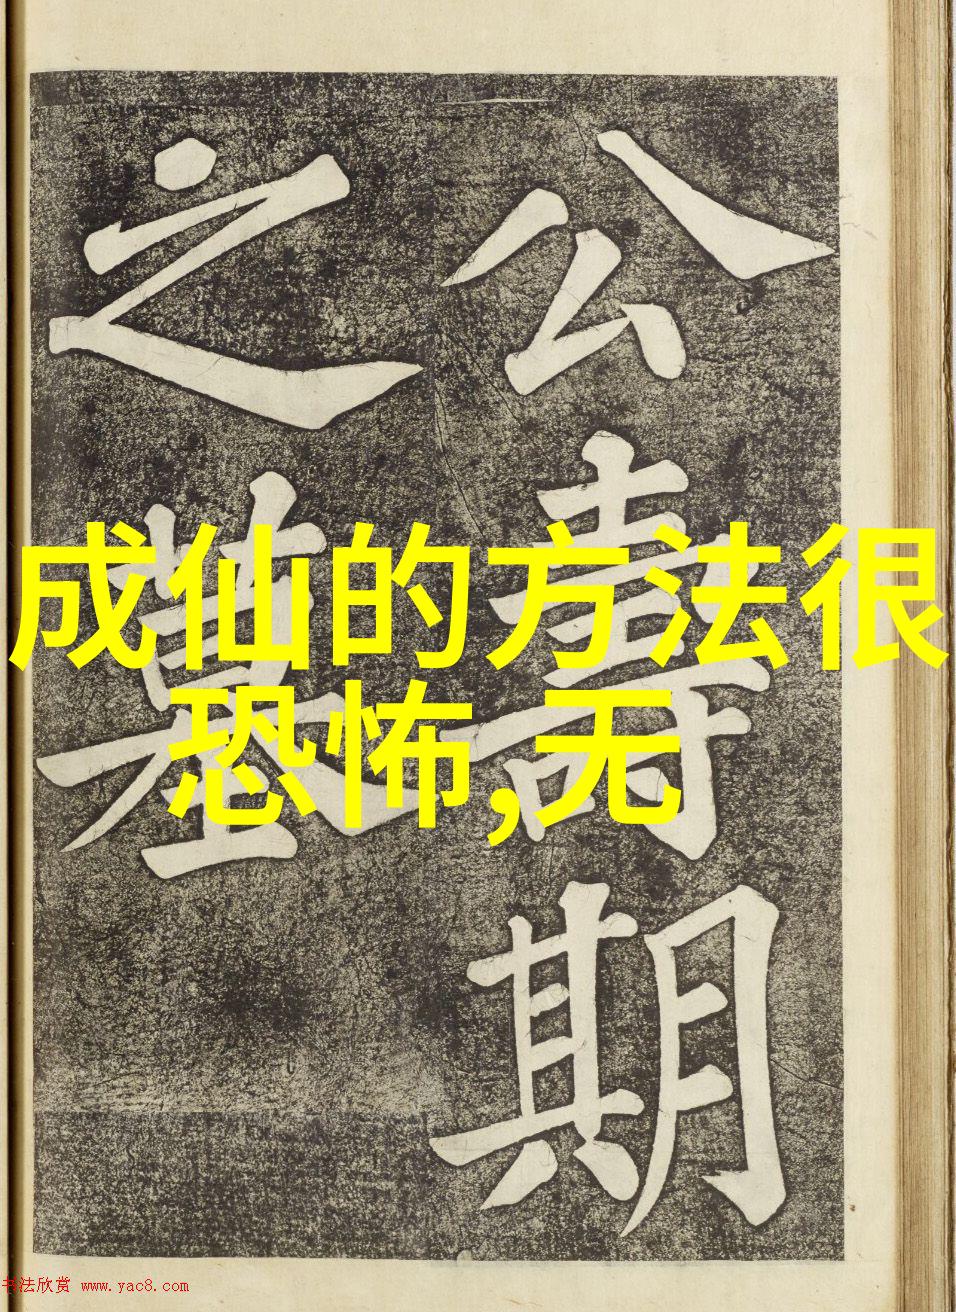 公壽期
之墓
成仙的方法很
恐怖,无
书法欣赏 www.yac8.com